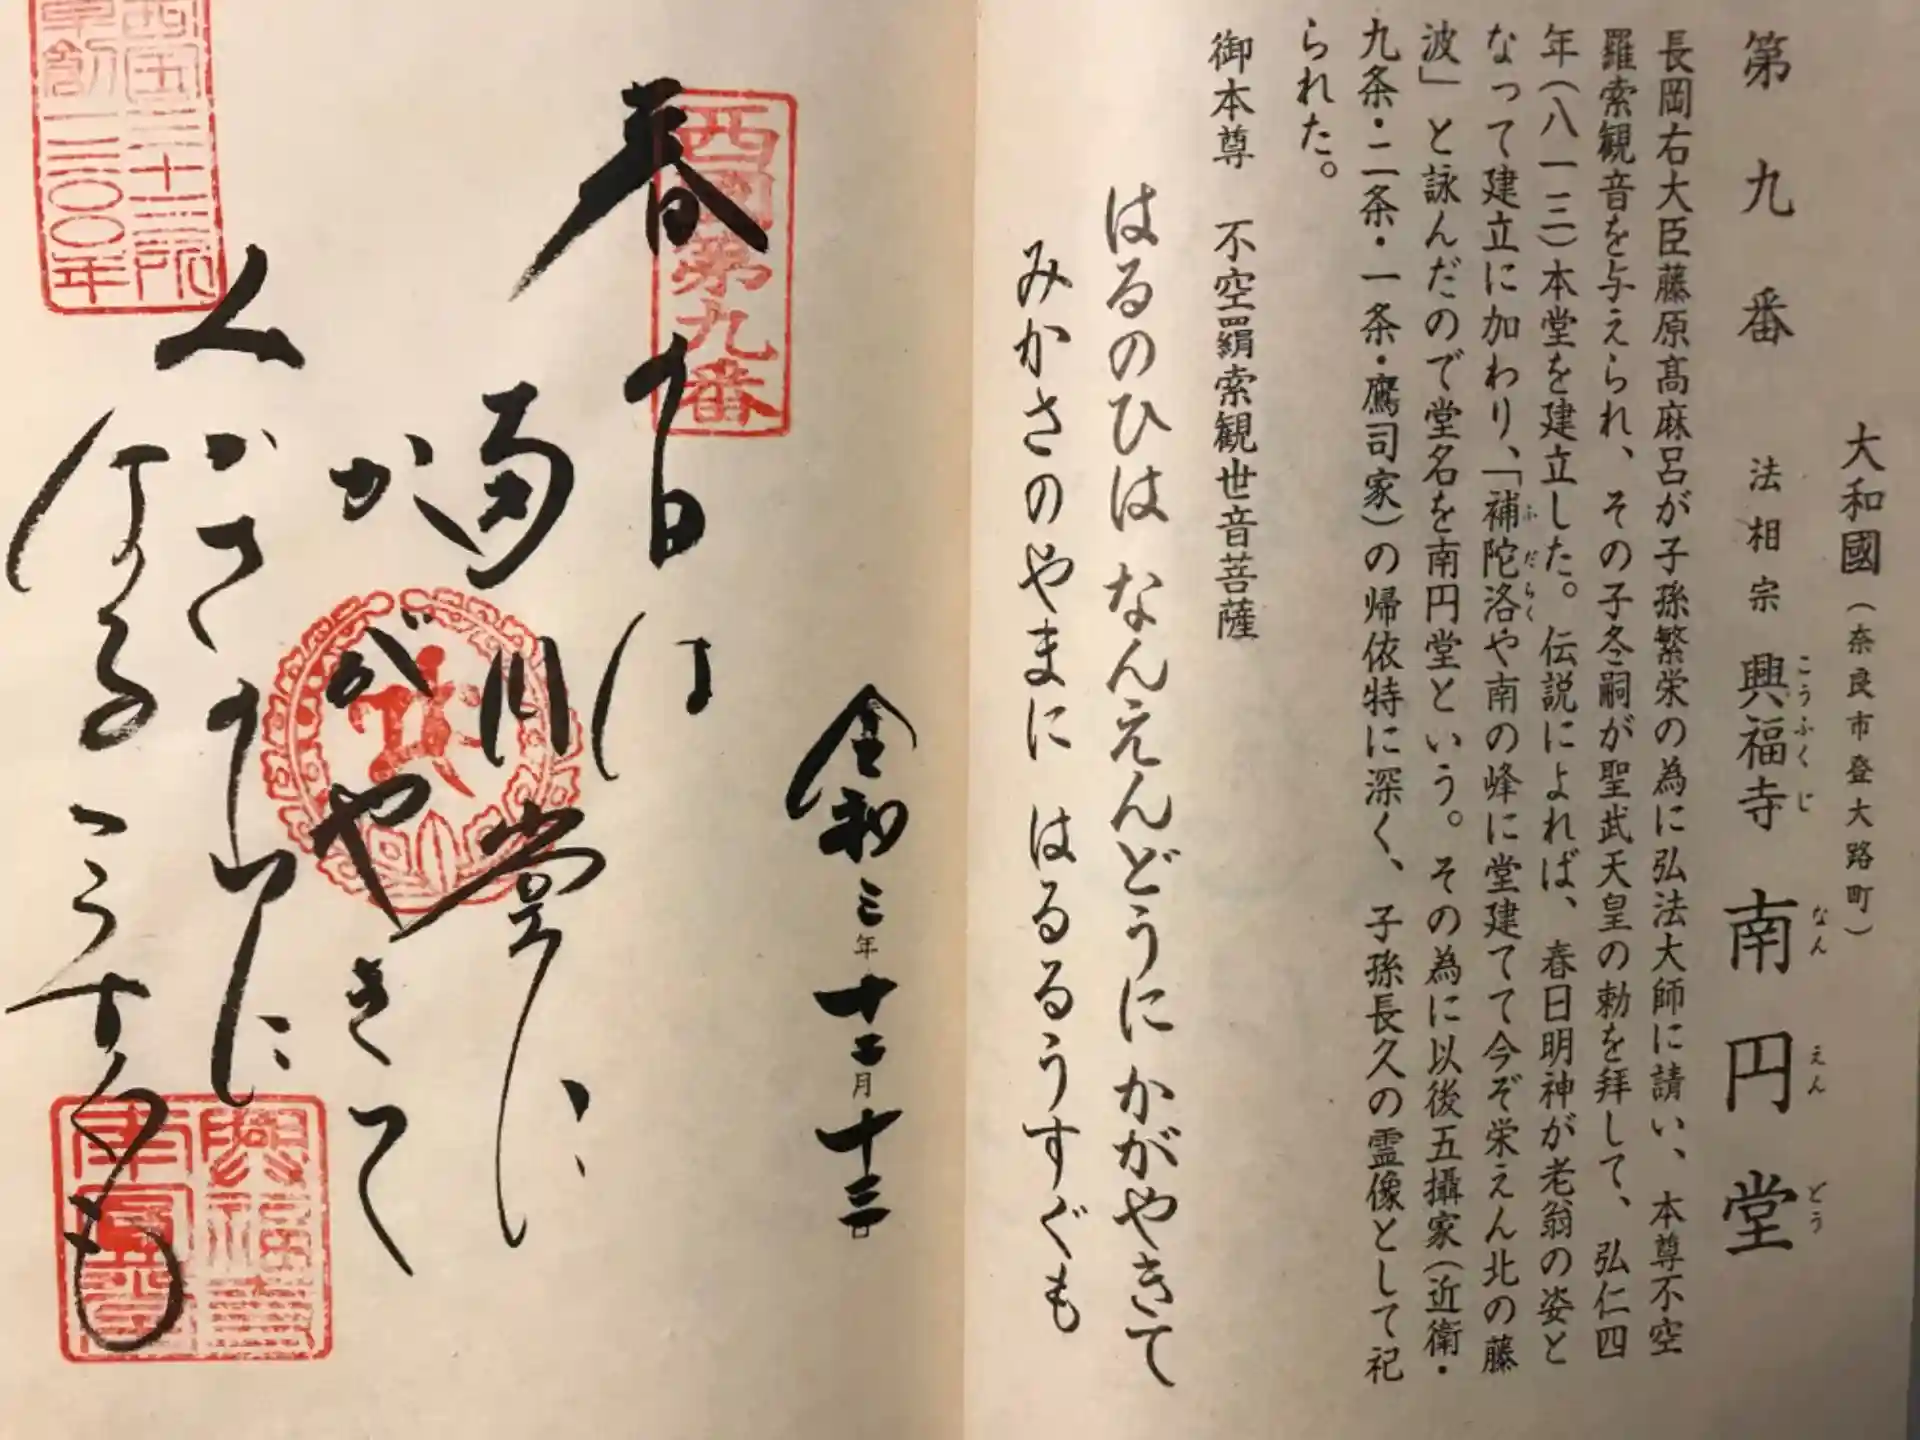 大和國（奈良市登大路町）
第九番 法相宗 興福寺 南円堂
こうふくじ なんえんどう
長岡右大臣藤原髙麻呂が子孫繁栄の為に弘法大師に請い、本尊不空
羅索観音を与えられ、その子冬嗣が聖武天皇の勅を拜して、弘仁四
年（八一三）本堂を建立した。伝説によれば、春日明神が老翁の姿と
なって建立に加わり、「補陀洛や南の峰に堂建てて今ぞ栄えん北の藤
ふだらく
波」と詠んだので堂名を南円堂という。その為に以後五攝家（近衛・
九条・二条・一条・鷹司家）の帰依特に深く、子孫長久の霊像として祀
られた。
御本尊 不空羂索観世音菩薩
はるのひは なんえんどうに かがやきて
みかさのやまに はるるうすぐも
令和三年十二月十三日
西国第九番
春の日は
南円堂に
かがやきて
三かさの山に
はるるうす久も
西国三十三所
草創一三〇〇年
興福寺
南円堂